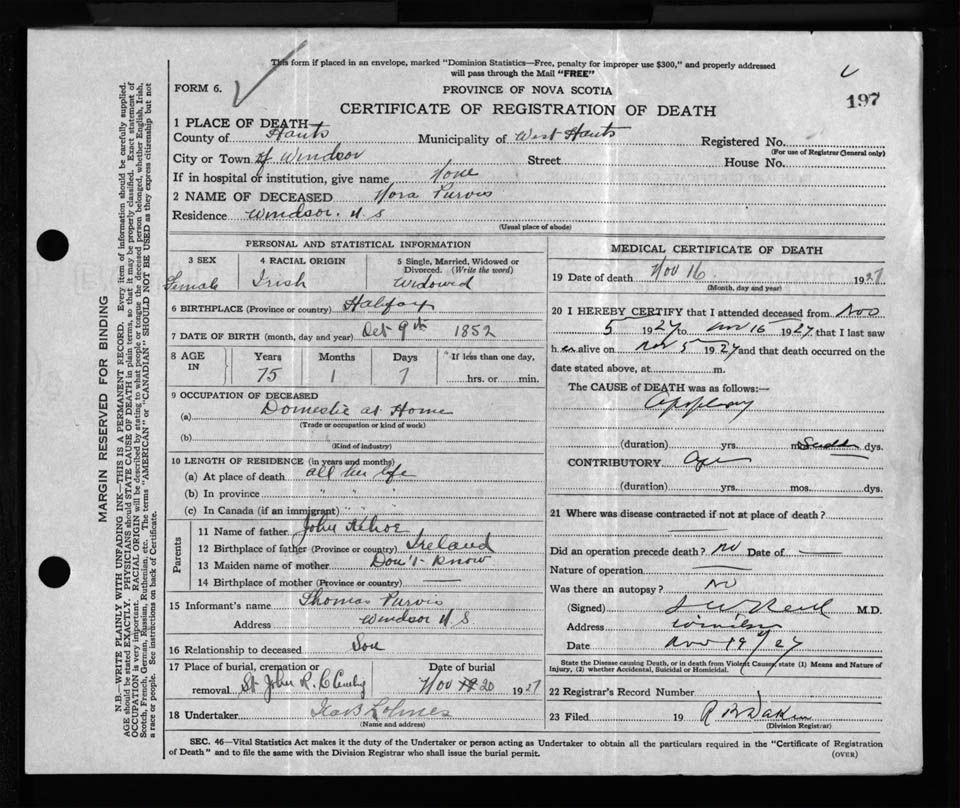 This form if placed in an envelope, marked "Dominion Statistics—Free, penalty for improper use $300," and properly addressed
will pass through the Mail "FREE"
FORM 6.
PROVINCE OF NOVA SCOTIA
197
CERTIFICATE OF REGISTRATION OF DEATH
1 PLACE OF DEATH
County of Hants Municipality of West Hants Registered No.
(For use of Registrar General only)
City or Town of Windsor Street House No.
If in hospital or institution, give name None
2 NAME OF DECEASED Nora Purvis
Residence Windsor. N S
(Usual place of abode)
PERSONAL AND STATISTICAL INFORMATION
3 SEX 4 RACIAL ORIGIN 5 Single, Married, Widowed or
Divorced. (Write the word)
Female Irish Widowed
6 BIRTHPLACE (Province or country) Halifax
7 DATE OF BIRTH (month, day and year) Oct 9th 1852
8 AGE IN Years Months Days If less than one day,
75 1 7 hrs. or min.
9 OCCUPATION OF DECEASED
(a) Domestic at Home
(Trade or occupation or kind of work)
(b)
(Kind of industry)
10 LENGTH OF RESIDENCE (in years and months)
(a) At place of death all her life
(b) In province " " "
(c) In Canada (if an immigrant) " " "
Parents
11 Name of father John Kehoe
12 Birthplace of father (Province or country) Ireland
13 Maiden name of mother Don't Know
14 Birthplace of mother (Province or country) —
15 Informant's name Thomas Purvis
Address Windsor N S
16 Relationship to deceased Son
17 Place of burial, cremation or Date of burial
removal St John R. C Cemty Nov 20 1927
18 Undertaker
(Name and address)
MEDICAL CERTIFICATE OF DEATH
19 Date of death Nov 16 1927
(Month, day and year)
20 I HEREBY CERTIFY that I attended deceased from Nov
5 1927 to Nov 16 1927 that I last saw
her alive on Nov 5 1927 and that death occurred on the
date stated above, at m.
The CAUSE of DEATH was as follows:—
Apoplexy
(duration) yrs. mos. dys.
CONTRIBUTORY Age
(duration) yrs. mos. dys.
21 Where was disease contracted if not at place of death?
Did an operation precede death? No Date of —
Nature of operation —
Was there an autopsy? No
(Signed) M.D.
Address Windsor
Date Nov 19/27
State the Disease causing Death, or in death from Violent Causes, state (1) Means and Nature of
Injury, (2) whether Accidental, Suicidal or Homicidal.
22 Registrar's Record Number
23 Filed 19
(Division Registrar)
SEC. 46—Vital Statistics Act makes it the duty of the Undertaker or person acting as Undertaker to obtain all the particulars required in the "Certificate of Registration
of Death" and to file the same with the Division Registrar who shall issue the burial permit.
(OVER)
MARGIN RESERVED FOR BINDING
N.B.—WRITE PLAINLY WITH UNFADING INK—THIS IS A PERMANENT RECORD. Every item of information should be carefully supplied.
AGE should be stated EXACTLY. PHYSICIANS should STATE CAUSE OF DEATH in plain terms, so that it may be properly classified. Exact statement of
OCCUPATION is very important. RACIAL ORIGIN will be described by stating to what people or tongue the deceased person belonged, whether English, Irish,
Scotch, French, German, Russian, Ruthenian, etc. The terms "AMERICAN" or "CANADIAN" SHOULD NOT BE USED as they express citizenship but not
a race or people. See instructions on back of Certificate.